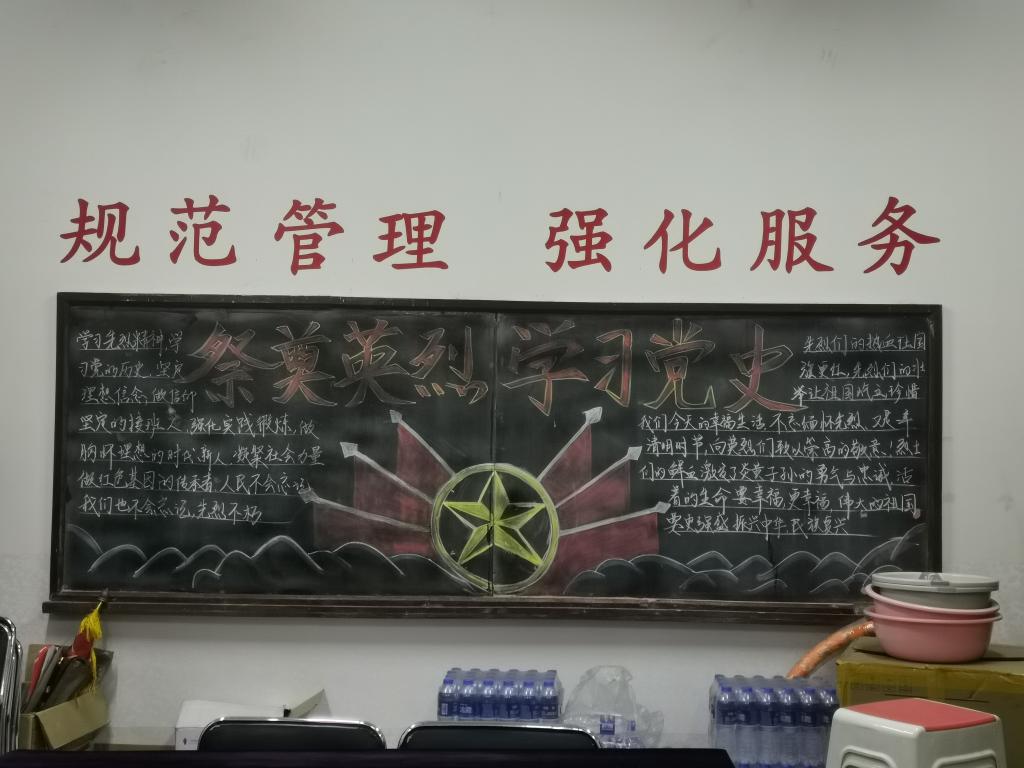 规范管理 强化服务
祭奠英烈 学习党史
学习先烈精神 学
习党的历史 坚定
理想信念 做信仰
坚定的接班人 强化实践锻炼 做
胸怀理想的时代新人 凝聚社会力量
做红色基因的传承者 人民不会忘记
我们也不会忘记 先烈不朽
先烈们的热血让国
强更壮 先烈们的壮
举让祖国屹立
我们今天的幸福生活 不忘缅怀先烈 又是一年
清明时节,向英烈们致以崇高的敬意!烈士
们的鲜血激发了炎黄子孙的勇气与忠诚 活
着的生命要幸福,更幸福 伟大的祖国
要更强盛 振兴中华 民族复兴